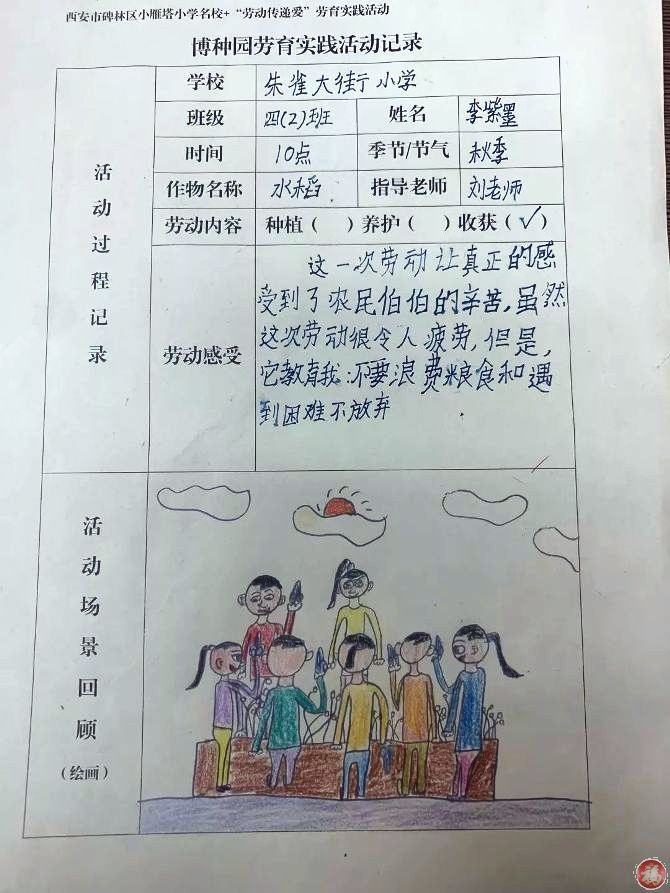 西安市碑林区小雁塔小学名校+“劳动传递爱”劳育实践活动
博种园劳育实践活动记录
活动过程记录
学校 朱雀大街小学
班级 四(2)班 姓名 李紫墨
时间 10点 季节/节气 秋季
作物名称 水稻 指导老师 刘老师
劳动内容 种植( )养护( )收获(√)
劳动感受
这一次劳动让真正的感
受到了农民伯伯的辛苦,虽然
这次劳动很令人疲劳,但是,
它教育我:不要浪费粮食和遇
到困难不放弃
活动场景回顾
(绘画)
福